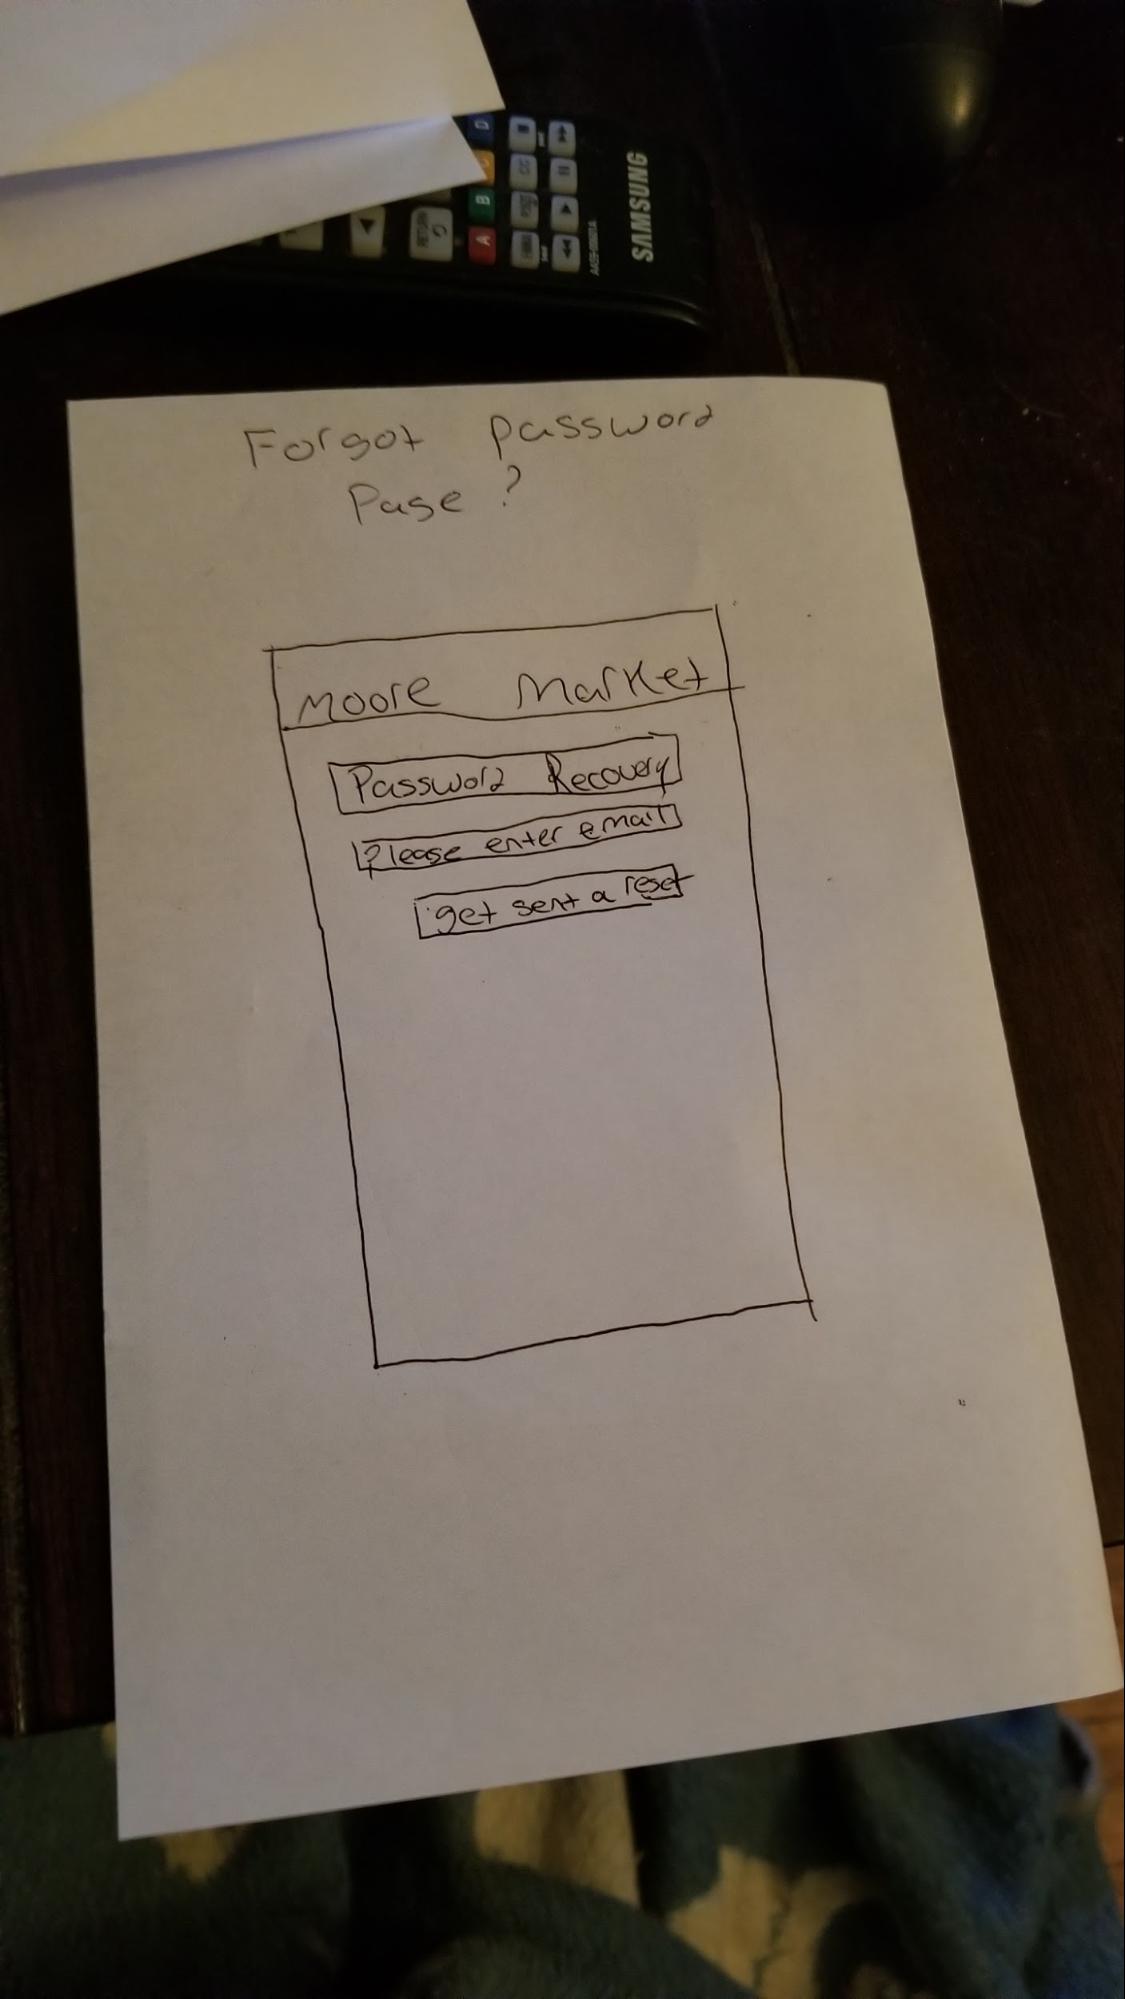 D
CC
B
RETURN
A
SAMSUNG
Forgot password
Page ?
Moore Market
Password Recovery
Please enter email
get sent a reset